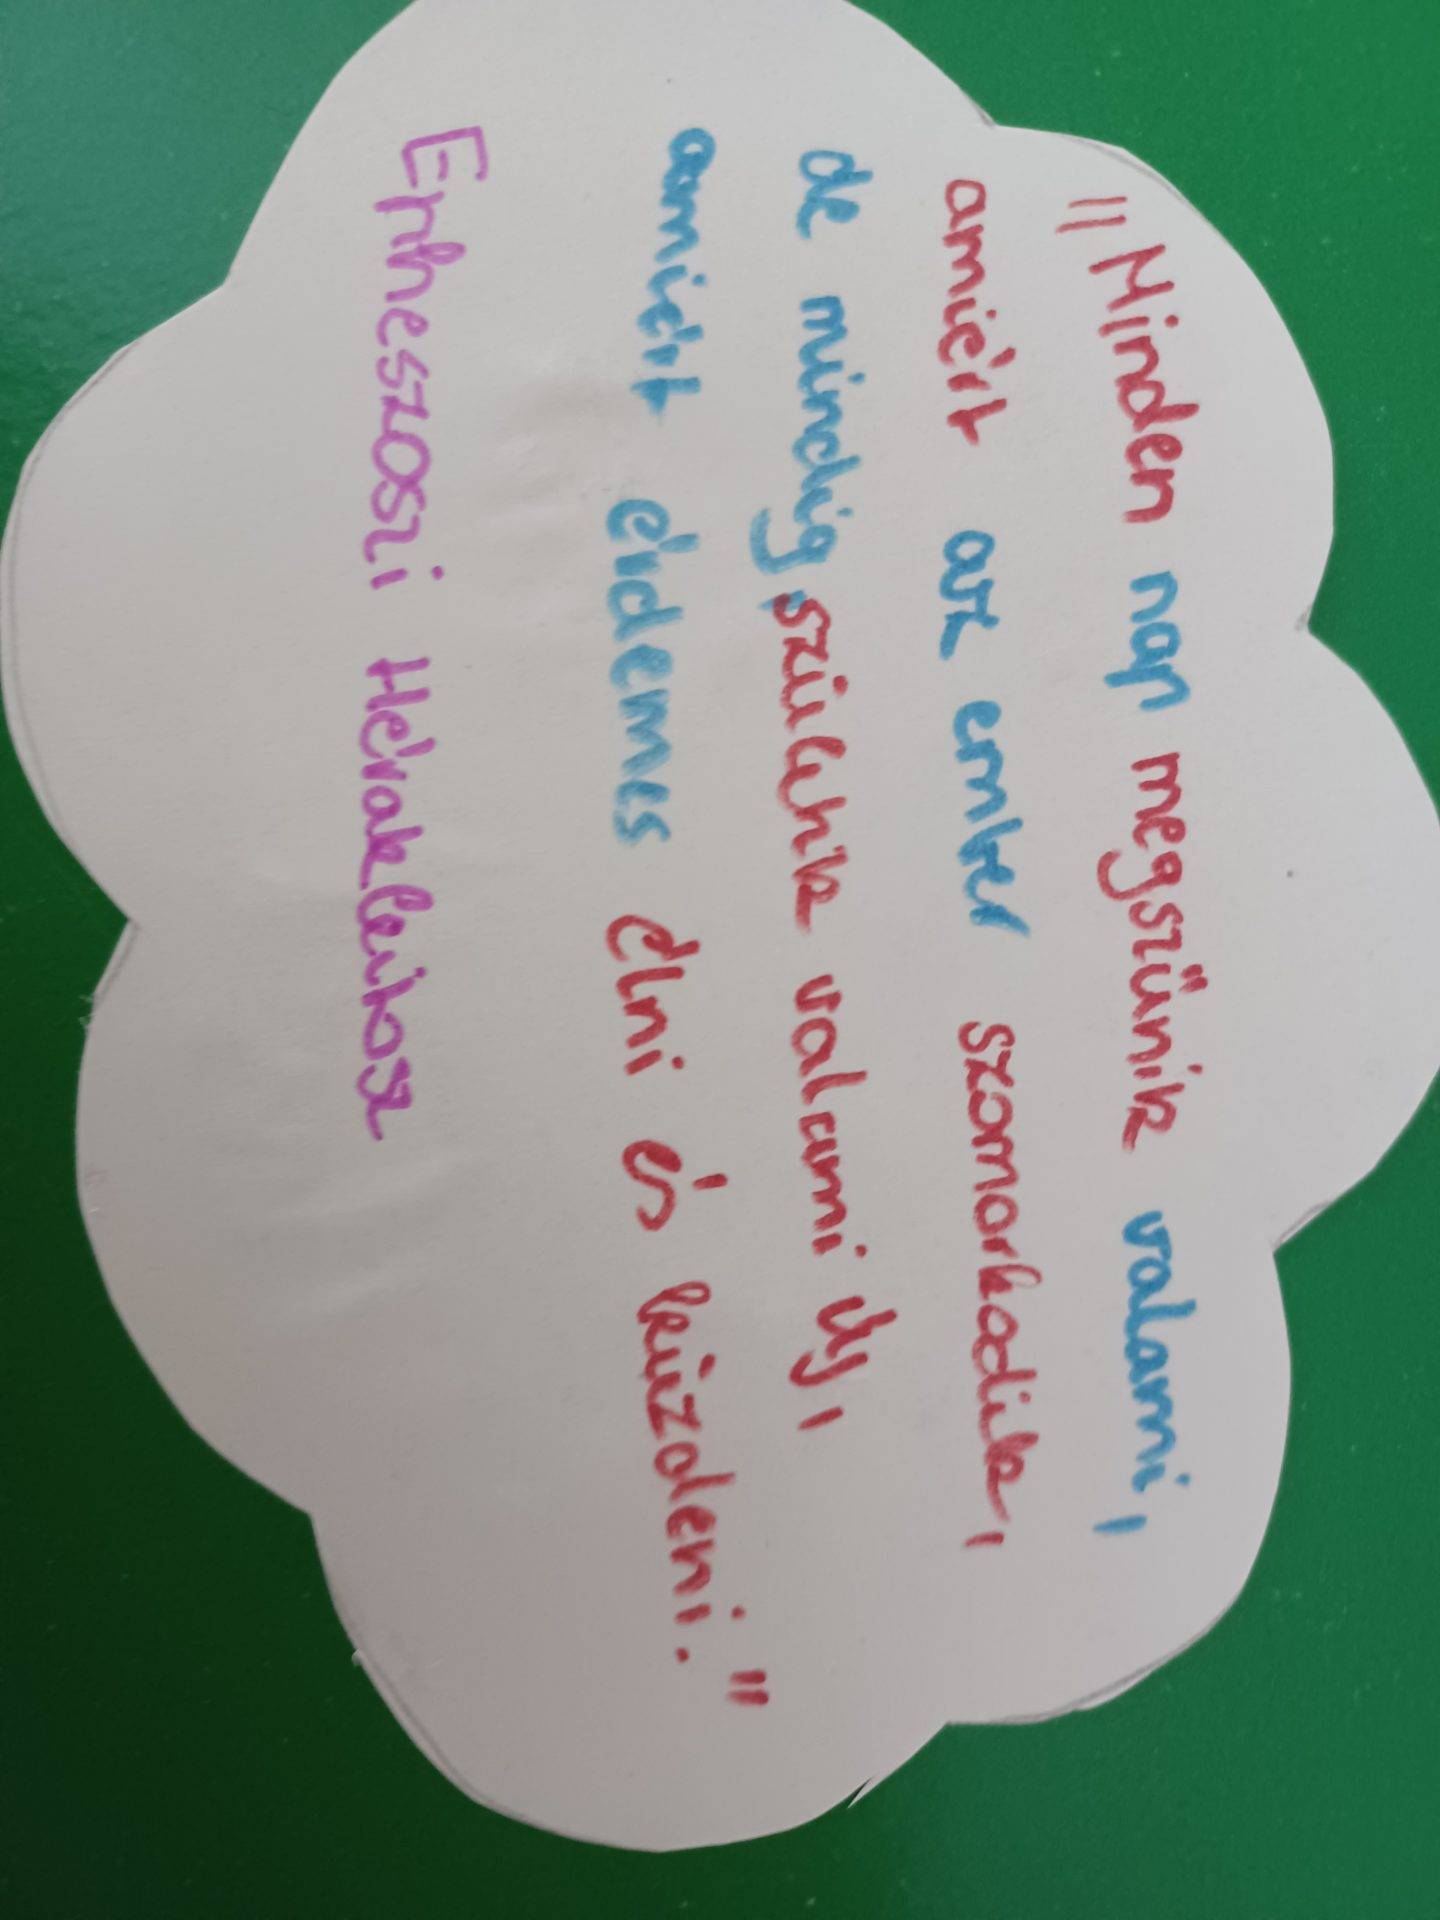 "Minden nap megszűnik valami,
amiért az ember szomorkodik,
de mindig születik valami új,
amiért érdemes élni és küzdeni."
Epheszoszi Hérakleitosz